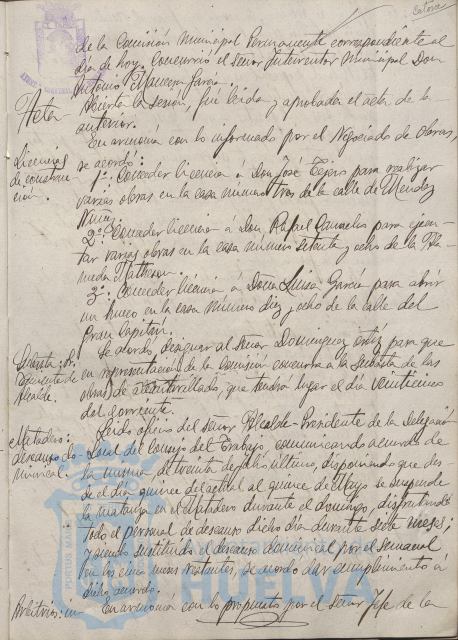 Catorce
de la Comisión Municipal Permanente correspondiente al
día de hoy. Concurrió el Señor Interventor Municipal Don
Antonio García.
Acta
Abierta la sesión, fué leida y aprobada el acta de la
anterior.
En armonía con lo informado por el Negociado de Obras,
Licencias
de construc-
ción.
se acordó:
1º. Conceder licencia á Don José Tejero para realizar
varias obras en la casa número tres de la calle de Mendez
Nuñez.
2º. Conceder licencia á Don Rafael Camacho para ejecu-
tar varias obras en la casa número setenta y ocho de la Ala-
meda Sundheim.
3º. Conceder licencia á Doña Luisa García para abrir
un hueco en la casa número diez y ocho de la calle del
Gran Capitán.
Se acordó designar al Señor Dominguez Ortiz para que
Subasta:
de
Alcalde.
en representación de la Comisión concurra á la Subasta de las
obras de alcantarillado, que tendrá lugar el día veinticinco
del corriente.
Leido oficio del Señor Alcalde-Presidente de la Delegación
Matadero:
descanso do-
minical.
Local del Consejo del Trabajo, comunicando acuerdo de
la misma de treinta de Julio último, disponiendo que des-
de el día quince del actual al quince de Mayo se suspenda
la matanza en el Matadero durante el domingo, disfrutando
todo el personal de descanso dicho día durante siete meses;
y siendo sustituido el descanso dominical por el semanal
en los cinco meses restantes, se acordó dar cumplimiento á
dicho acuerdo.
Arbitrios: un
En armonía con lo propuesto por el Señor Jefe de la
PORTUS MARIS
HUELVA